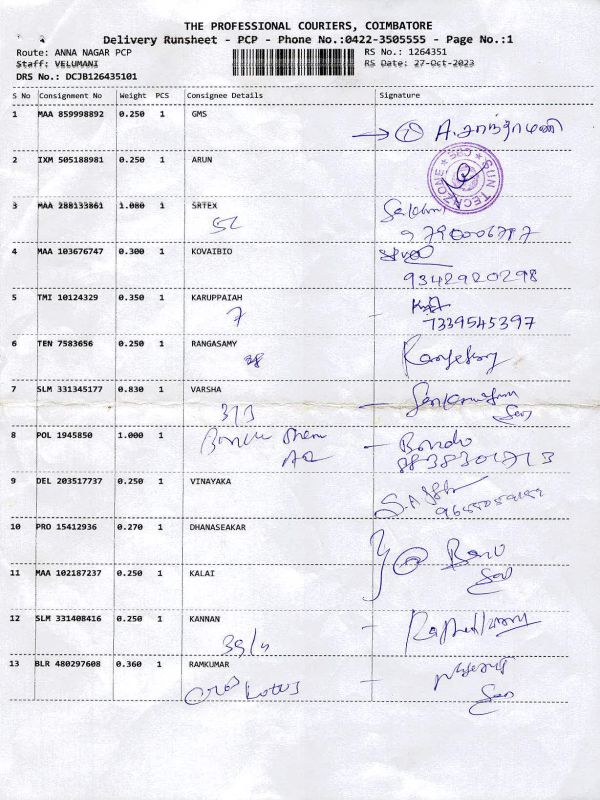 THE PROFESSIONAL COURIERS, COIMBATORE
Delivery Runsheet - PCP - Phone No.:0422-3505555 - Page No.:1
Route: ANNA NAGAR PCP
RS No.: 1264351
Staff: VELUMANI
RS Date: 27-Oct-2023
DRS No.: DCJB126435101
S No Consignment No Weight PCS Consignee Details Signature
1 MAA 859998892 0.250 1 GMS
① A.சாந்தாமணி
2 IXM 505188981 0.250 1 ARUN
SUN TECHZONE
3 MAA 288133861 1.080 1 SRTEX
52
9790006787
4 MAA 103676747 0.300 1 KOVAIBIO
9342920298
5 TMI 10124329 0.350 1 KARUPPAIAH
7
7339545397
6 TEN 7583656 0.250 1 RANGASAMY
7 SLM 331345177 0.830 1 VARSHA
8 POL 1945850 1.000 1
9 DEL 203517737 0.250 1 VINAYAKA
10 PRO 15412936 0.270 1 DHANASEAKAR
11 MAA 102187237 0.250 1 KALAI
12 SLM 331408416 0.250 1 KANNAN
13 BLR 480297608 0.360 1 RAMKUMAR
Lotus